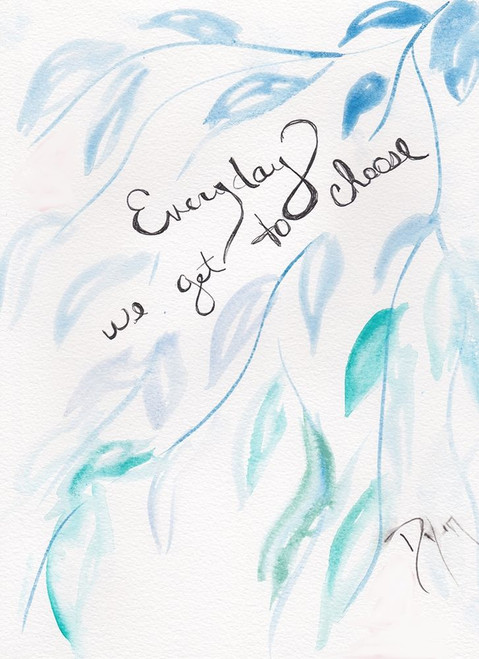 Everyday
we get to choose